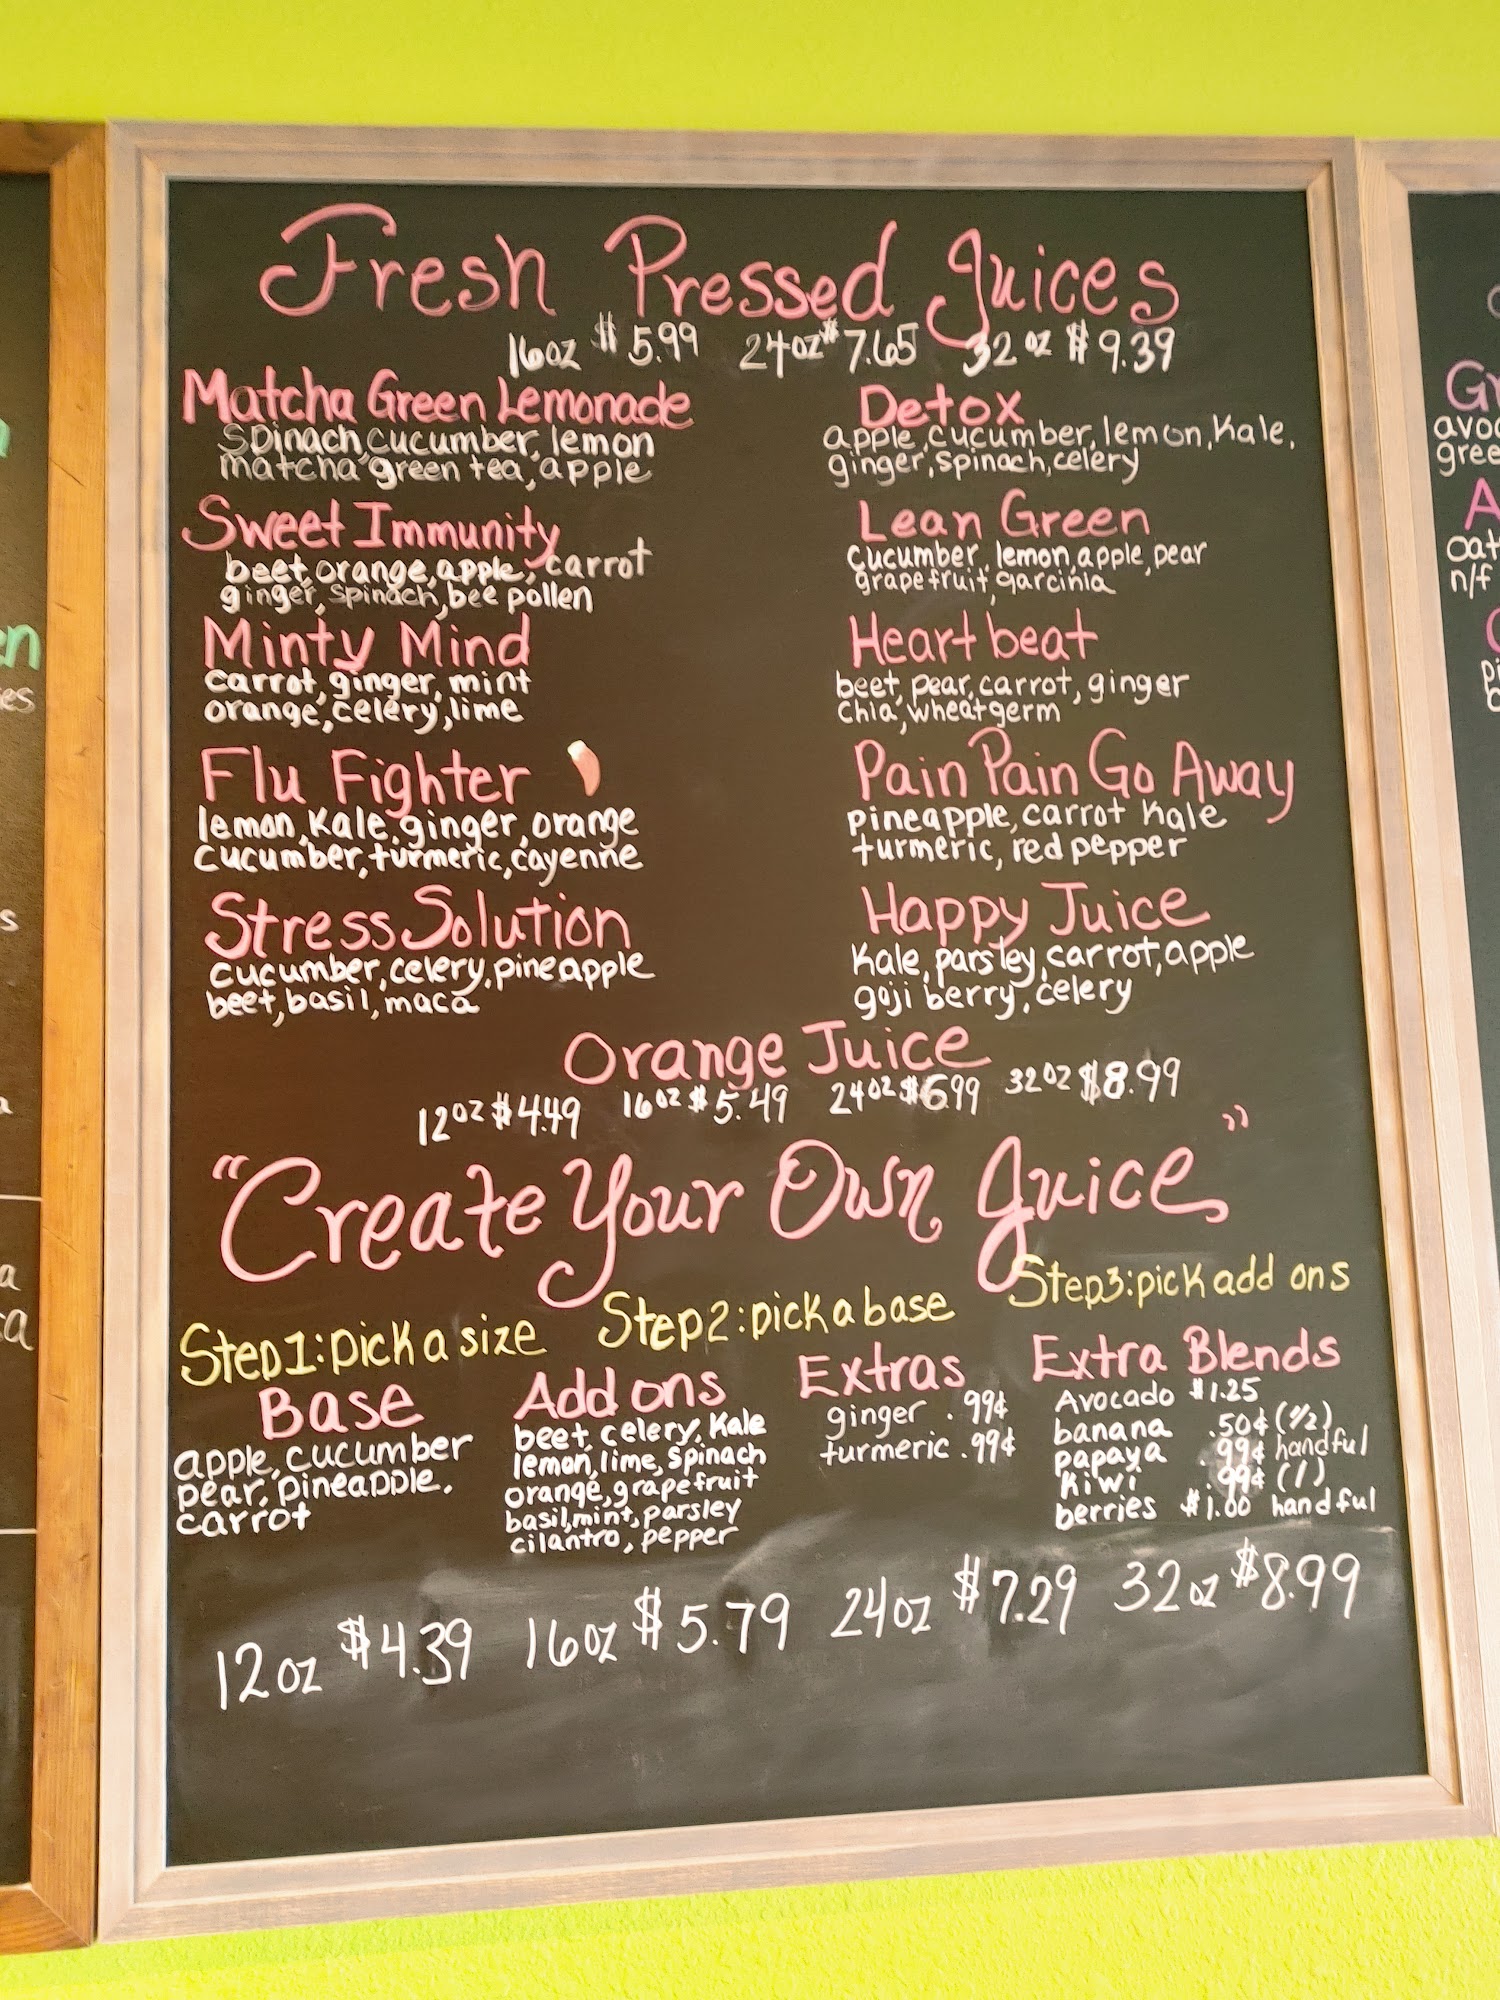 Fresh Pressed Juices
16oz $5.99 24oz $7.65 32oz $9.39
Matcha Green Lemonade
spinach, cucumber, lemon
matcha green tea, apple
Sweet Immunity
beet, orange, apple, carrot
ginger, spinach, bee pollen
Minty Mind
carrot, ginger, mint
orange, celery, lime
Flu Fighter
lemon, Kale, ginger, orange
cucumber, turmeric, cayenne
Stress Solution
cucumber, celery, pineapple
beet, basil, maca
Detox
apple, cucumber, lemon, Kale,
ginger, spinach, celery
Lean Green
cucumber, lemon, apple, pear
grapefruit, garcinia
Heart beat
beet, pear, carrot, ginger
chia, wheatgerm
Pain Pain Go Away
pineapple, carrot Kale
turmeric, red pepper
Happy Juice
Kale, parsley, carrot, apple
goji berry, celery
Orange Juice
12oz $4.49 16oz $5.49 24oz $6.99 32oz $8.99
"Create Your Own Juice"
Step1: pick a size Step2: pick a base Step3: pick add ons
Base
apple, cucumber
pear, pineapple,
carrot
Add ons
beet, celery, Kale
lemon, lime, spinach
orange, grapefruit
basil, mint, parsley
cilantro, pepper
Extras
ginger .99¢
turmeric .99¢
Extra Blends
Avocado $1.25
banana .50¢ (1/2)
papaya .99¢ handful
Kiwi .99¢ (1)
berries $1.00 handful
12oz $4.39 16oz $5.79 24oz $7.29 32oz $8.99